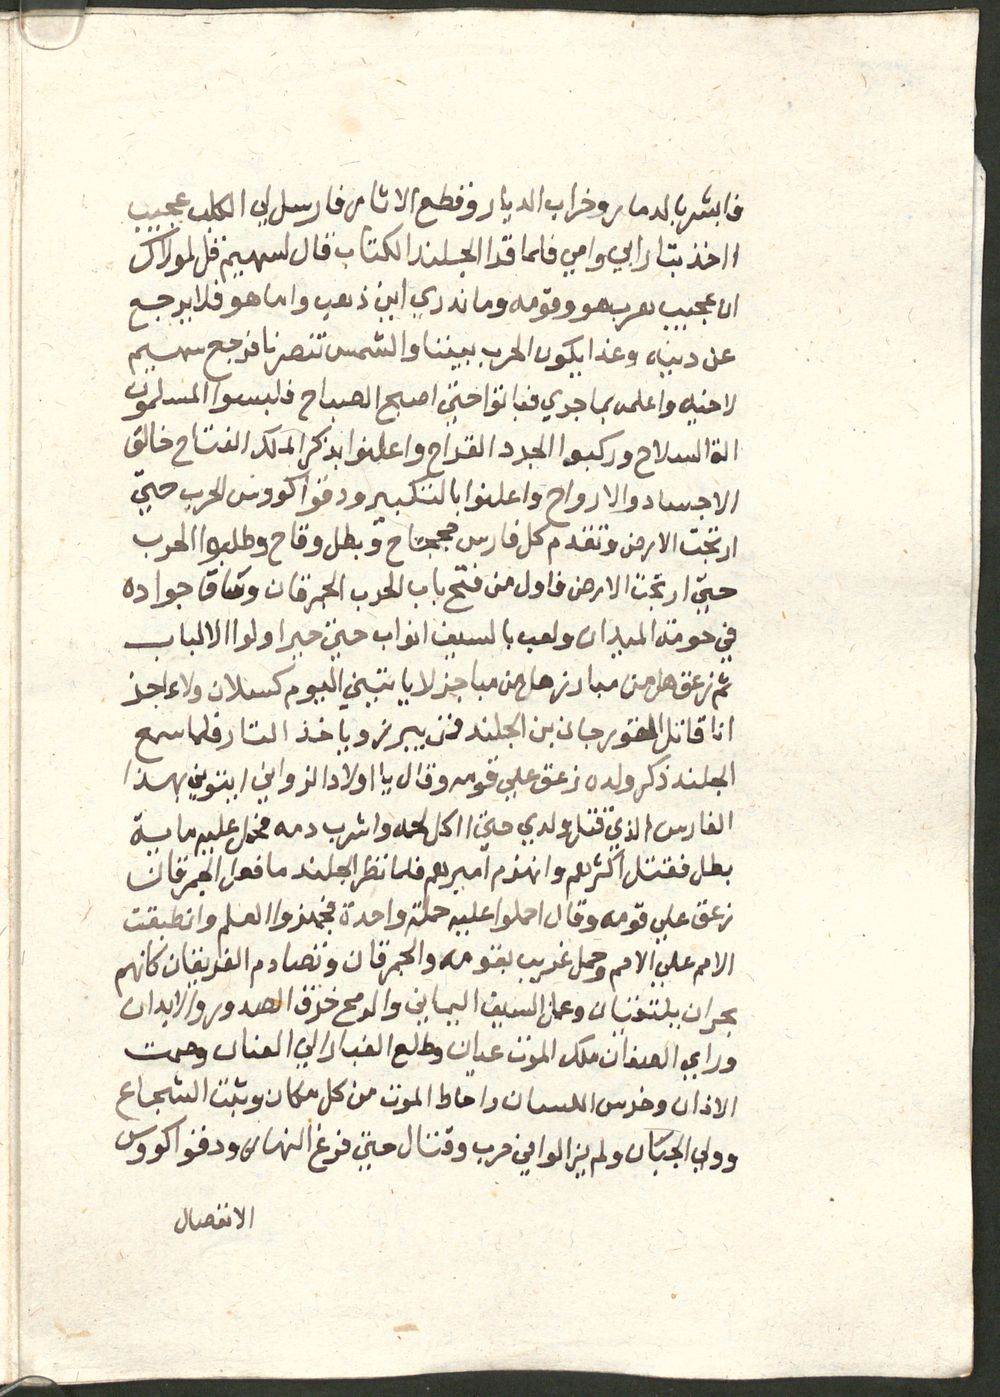 فابشر بالدمار وخراب الديار وقطع الاثار فارسل لي الكلب عجيب
ااخذ بتار ابي وامي فلما قرا الجلند الكتاب قال لسهيم قل لمولاك
ان عجيب هرب هو وقومه وما ندري اين ذهب واما هو فلا يرجع
عن دينه وغدا يكون الحرب بيننا والشمس تنصرنا فرجع سهيم
لاخيه واعلمه بما جري فباتوا حتي اصبح الصباح فلبسوا المسلمون
الة السلاح وركبوا الجرد القداح واعلنوا بذكر الملك الفتاح خالق
الاجساد والارواح واعلنوا بالتكبير ودقوا كووس الحرب حتي
ارتجت الارض وتقدم كل فارس جحجاح وبطل وقاح وطلبوا الحرب
حتي ارتجت الارض فاول من فتح باب الحرب الجمرقان وساق جواده
في حومة الميدان ولعب بالسيف ابواب حتي حير اولوا الالباب
ثم زعق هل من مبارز هل من مناجز لا ياتيني اليوم كسلان ولا عاجز
انا قاتل القورجان بن الجلند فمن يبرز وياخذ التار فلما سمع
الجلند ذكر ولده زعق علي قومه وقال يا اولاد الزواني ايتوني بهذا
الفارس الذي قتل ولدي حتي ااكل لحمه واشرب دمه فحمل عليه ماية
بطل فقتل اكثرهم وانهزم اميرهم فلما نظر الجلند ما فعل الجمرقان
زعق علي قومه وقال احملوا عليه حملة واحدة فهزوا العلم وانطبقت
الامم علي الامم وحمل غريب بقومه والجمرقان وتصادم الفريقان كانهم
بحران يلتقيان وعمل السيف اليماني والرمح خرق الصدور والابدان
وراي الصفان ملك الموت عيان وطلع الغبار الي العنان وصمت
الاذان وخرس اللسان واحاط الموت من كل مكان وثبت الشجاع
وولي الجبان ولم يزالوا في حرب وقتال حتي فرغ النهار ودقوا كووس
الانفصال